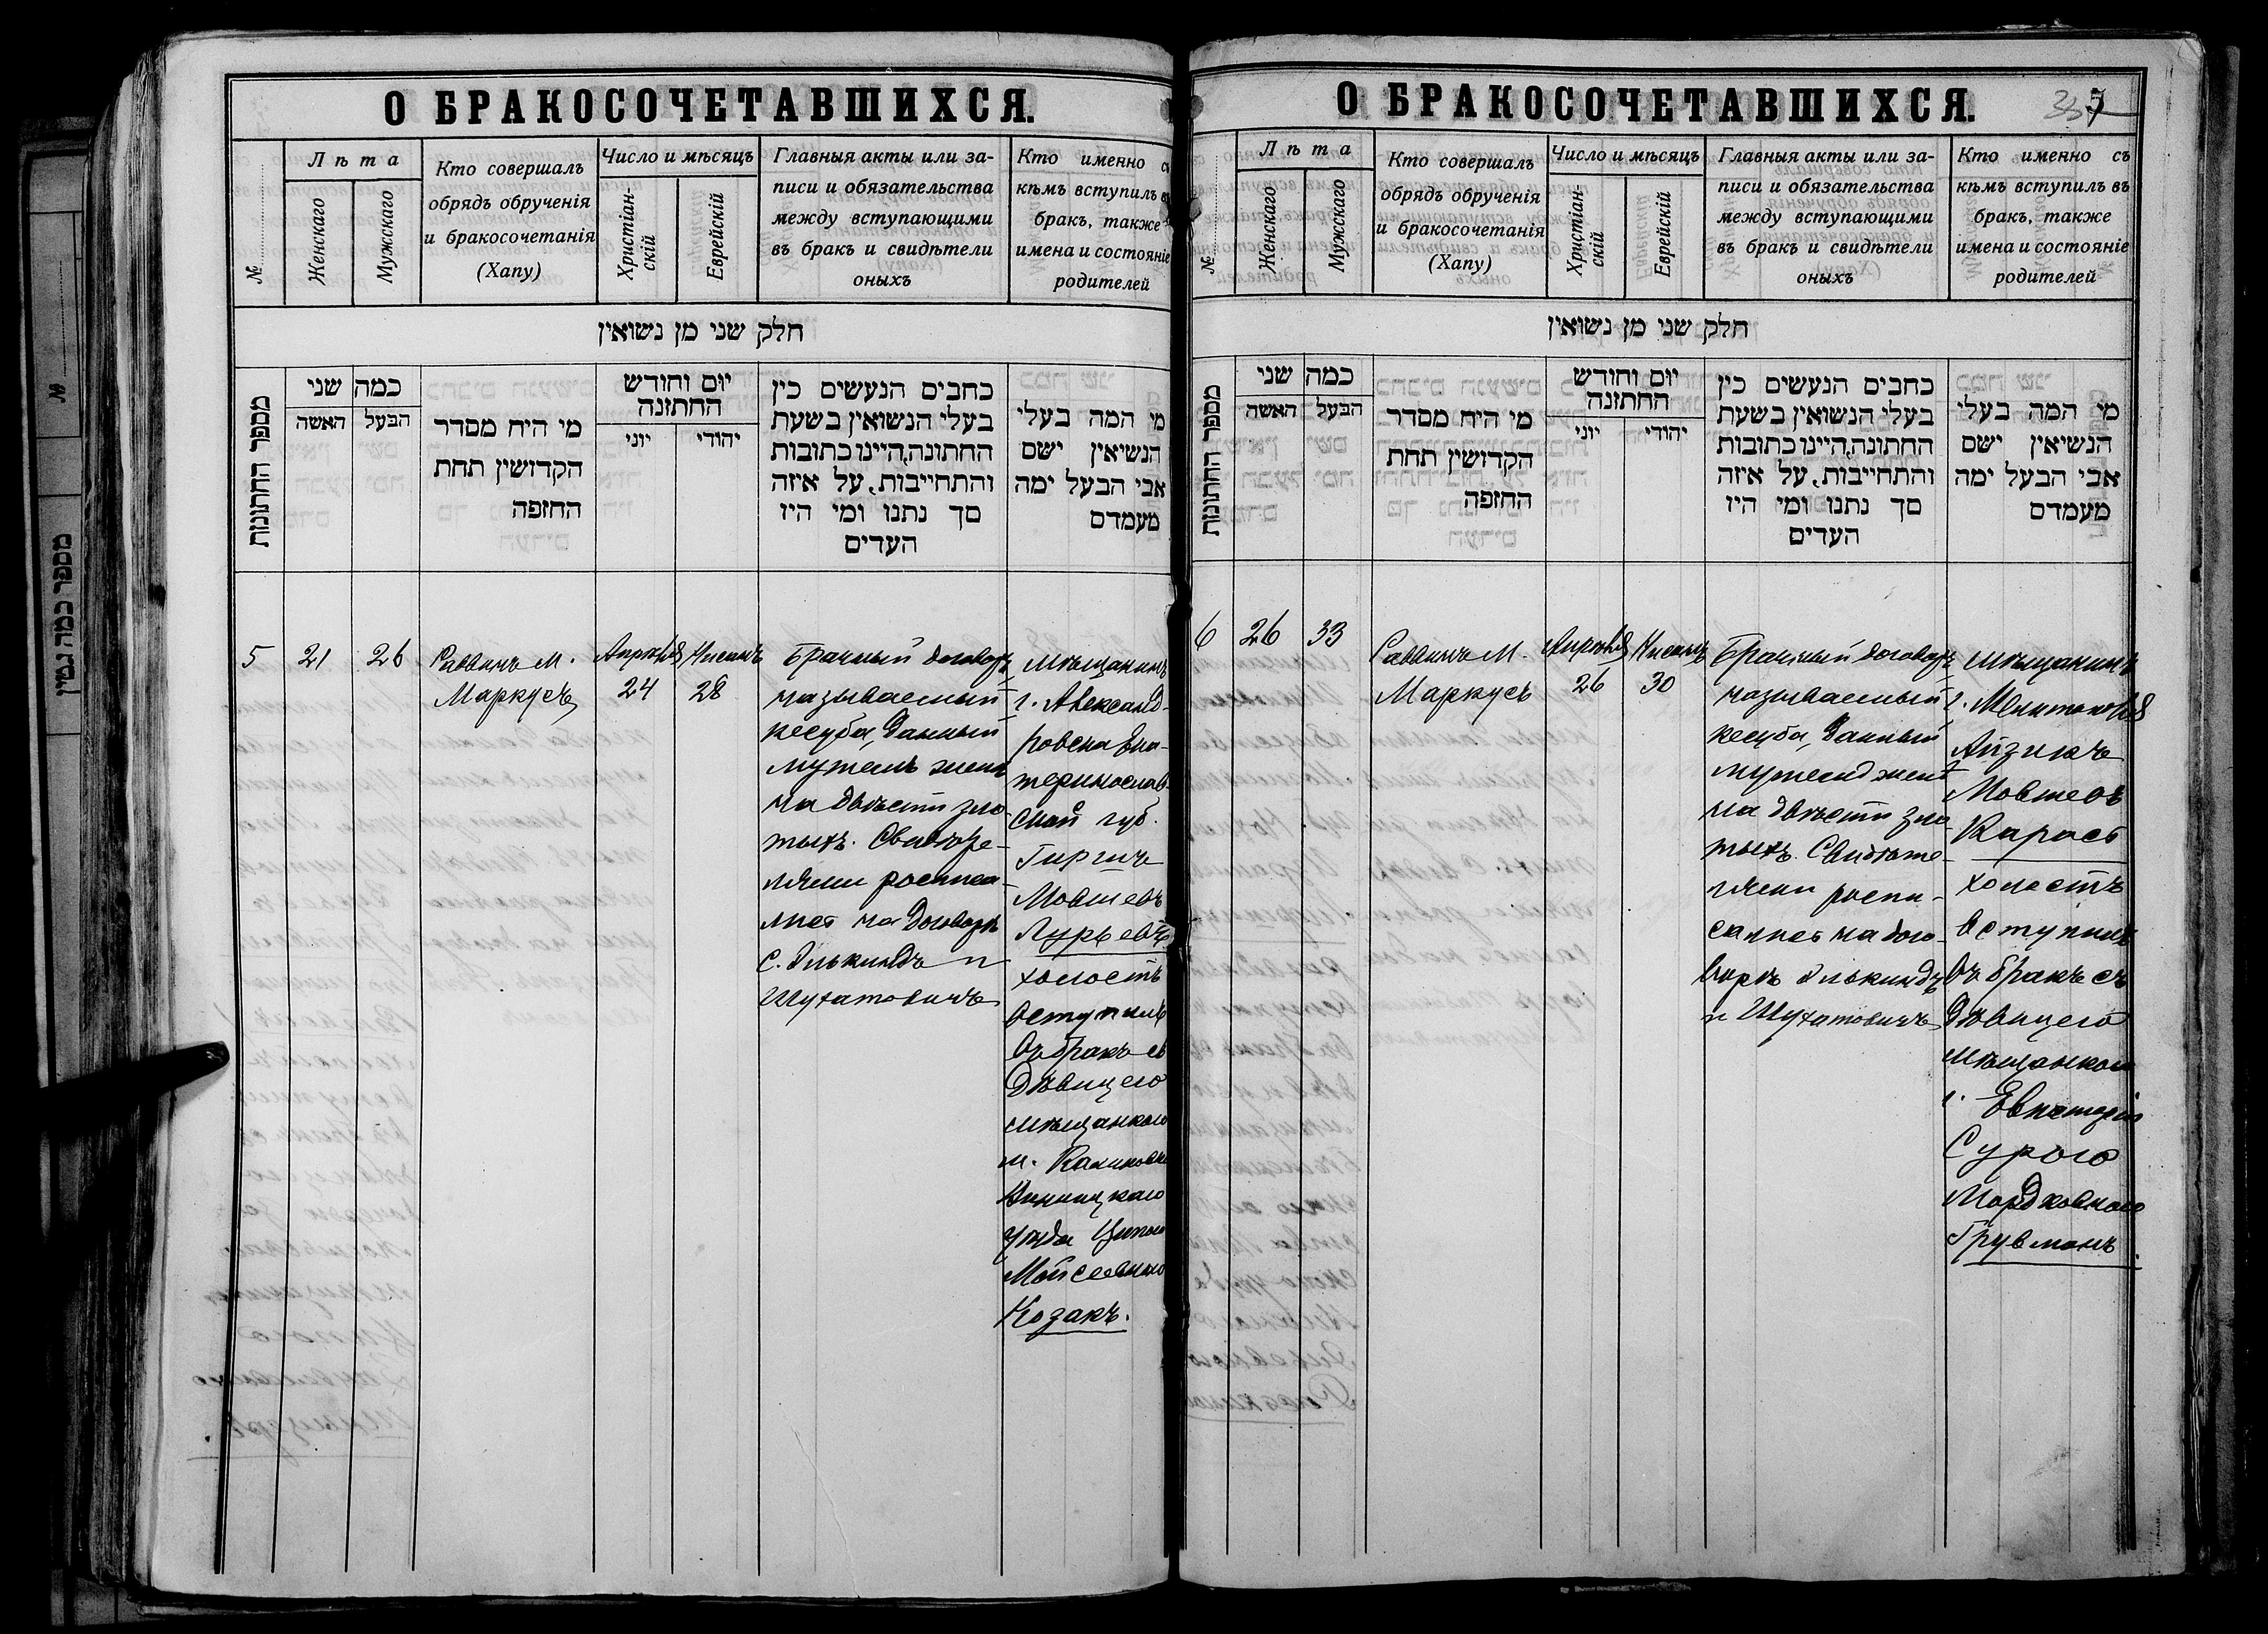 О БРАКОСОЧЕТАВШИХСЯ.
№
Лѣта
Женскаго
Мужскаго
Кто совершалъ
обрядъ обрученія
и бракосочетанія
(Хапу)
Число и мѣсяцъ
Христіан-
скій
Еврейскій
Главныя акты или за-
писи и обязательства
между вступающими
въ бракъ и свидѣтели
оныхъ
Кто именно съ
кѣмъ вступилъ въ
бракъ, также
имена и состояніе
родителей
חלק שני מן נשואין
מספר החתונות
כמה שני
האשה
הבעל
מי היח מסדר
הקדושין תחת
החזפה
יום וחודש
החתזנה
יוני
יהודי
כחבים הנעשים כין
בעלי הנשואין בשעת
החתונה, היינו כתובות
והתחייבות, על איזה
סך נתנו ומי היז
העדים
מי המה בעלי
הנשיאין ישם
אבי הבעל ימה
מעמדם
5
21
26
Раввинъ М.
Маркусъ
Апрѣля
24
Нисанъ
28
Брачный договоръ
называемый
кесуба, данный
мужемъ женѣ
на двѣсти зло-
тыхъ. Свидѣте-
лями росписа-
лись на договорѣ
С. Элькиндъ и
Шухатовичъ
мѣщанинъ
г. Александ-
ровска Ека-
теринослав-
ской губ.
Гиршъ
Мовшевъ
Лурьевъ
холостъ
вступилъ
въ бракъ съ
дѣвицею
мѣщанкою
м. Калиновки
Винницкаго
уѣзда Ципою
Мойсеевною
Козакъ.
О БРАКОСОЧЕТАВШИХСЯ.
№
Лѣта
Женскаго
Мужскаго
Кто совершалъ
обрядъ обрученія
и бракосочетанія
(Хапу)
Число и мѣсяцъ
Христіан-
скій
Еврейскій
Главныя акты или за-
писи и обязательства
между вступающими
въ бракъ и свидѣтели
оныхъ
Кто именно съ
кѣмъ вступилъ въ
бракъ, также
имена и состояніе
родителей
חלק שני מן נשואין
מספר החתונות
כמה שני
האשה
הבעל
מי היח מסדר
הקדושין תחת
החזפה
יום וחודש
החתזנה
יוני
יהודי
כחבים הנעשים כין
בעלי הנשואין בשעת
החתונה, היינו כתובות
והתחייבות, על איזה
סך נתנו ומי היז
העדים
מי המה בעלי
הנשיאין ישם
אבי הבעל ימה
מעמדם
6
26
33
Раввинъ М.
Маркусъ
Апрѣля
26
Нисанъ
30
Брачный договоръ
называемый
кесуба, данный
мужемъ женѣ
на двѣсти зло-
тыхъ. Свидѣте-
лями роспи-
сались на дого-
ворѣ Элькиндъ
и Шухатовичъ
мѣщанинъ
г. Мелитополя
Айзикъ
Мовшевъ
Карась
холостъ
вступилъ
въ бракъ съ
дѣвицею
мѣщанкою
г. Евпаторіи
Сурою
Мордковною
Грувманъ.
מספר כמה גטין
№